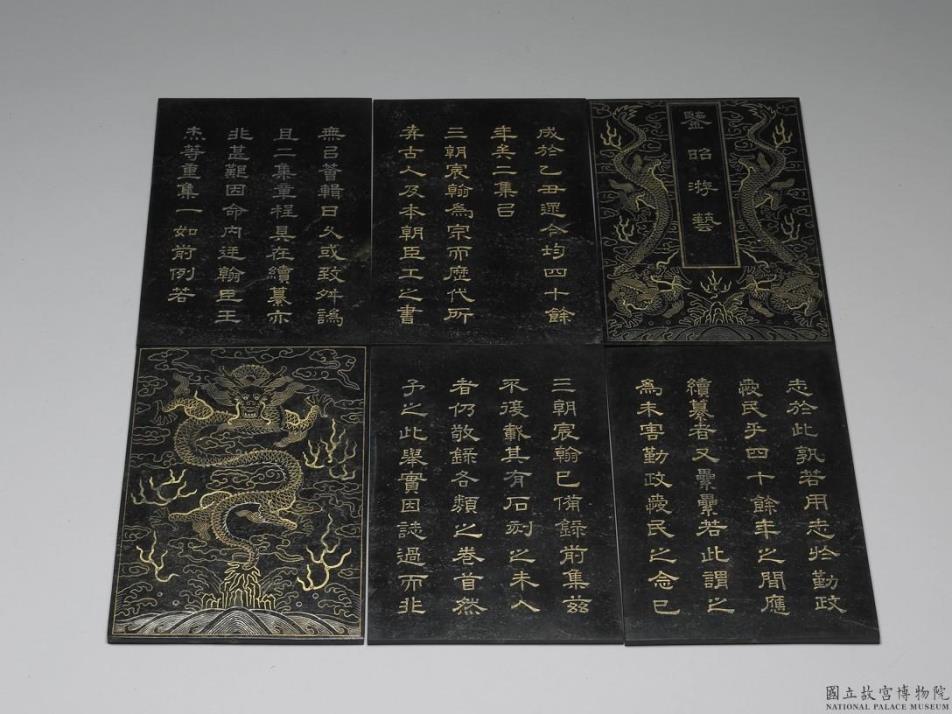 鑒昭游藝
成於乙丑逮今均四十餘
年矣二集㠯
三朝宸翰為宗而歷代所
弆古人及本朝臣工之書
無㠯薈輯日久或致舛譌
且二集章程具在續纂亦
非甚艱因命內廷翰臣王
杰等重集一如前例若
三朝宸翰已備錄前集茲
不復載其有石刻之未入
者仍敬錄各類之卷首然
予之此舉實因誌過而非
志於此孰若用志於勤政
愛民乎四十餘年之間應
續纂者又纍纍若此謂之
為未害勤政愛民之念已
國立故宮博物院
NATIONAL PALACE MUSEUM